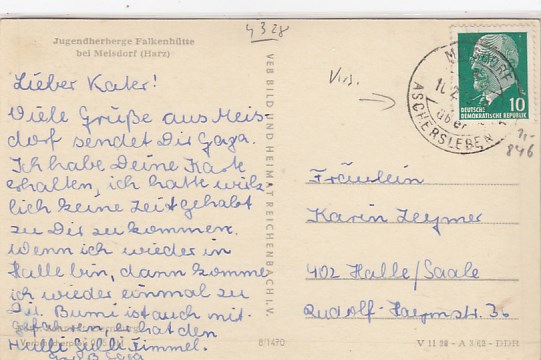 4328
Jugendherberge Falkenhütte
bei Meisdorf (Harz)
Lieber Kater!
Viele Grüße aus Meis-
dorf sendet Dir Gaga.
Ich habe Deine Karte
erhalten, ich hatte wirk-
lich keine Zeit gehabt
zu Dir zu kommen.
Wenn ich wieder in
Halle bin, dann komme
ich wieder einmal zu
Dir. Bumi ist auch mit-
gefahren, er hat den
Fimmel.
Gaga
VEB BILD UND HEIMAT REICHENBACH I. V.
8/1470
MEISDORF
über
ASCHERSLEBEN
10
DEUTSCHE
DEMOKRATISCHE REPUBLIK
846
Fräulein
Karin
402 Halle/Saale
Rudolf-Haymstr. 36
V 11 28 - A 3/62 - DDR